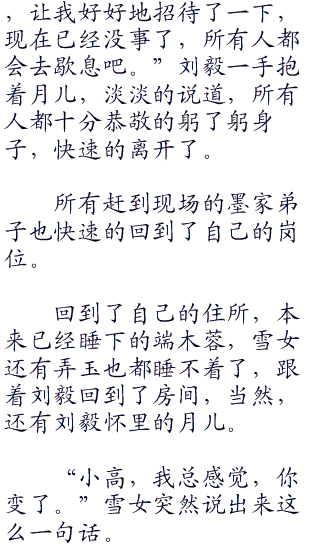 ，让我好好地招待了一下，
现在已经没事了，所有人都
会去歇息吧。”刘毅一手抱
着月儿，淡淡的说道，所有
人都十分恭敬的躬了躬身
子，快速的离开了。
所有赶到现场的墨家弟
子也快速的回到了自己的岗
位。
回到了自己的住所，本
来已经睡下的端木蓉，雪女
还有弄玉也都睡不着了，跟
着刘毅回到了房间，当然，
还有刘毅怀里的月儿。
“小高，我总感觉，你
变了。”雪女突然说出来这
么一句话。